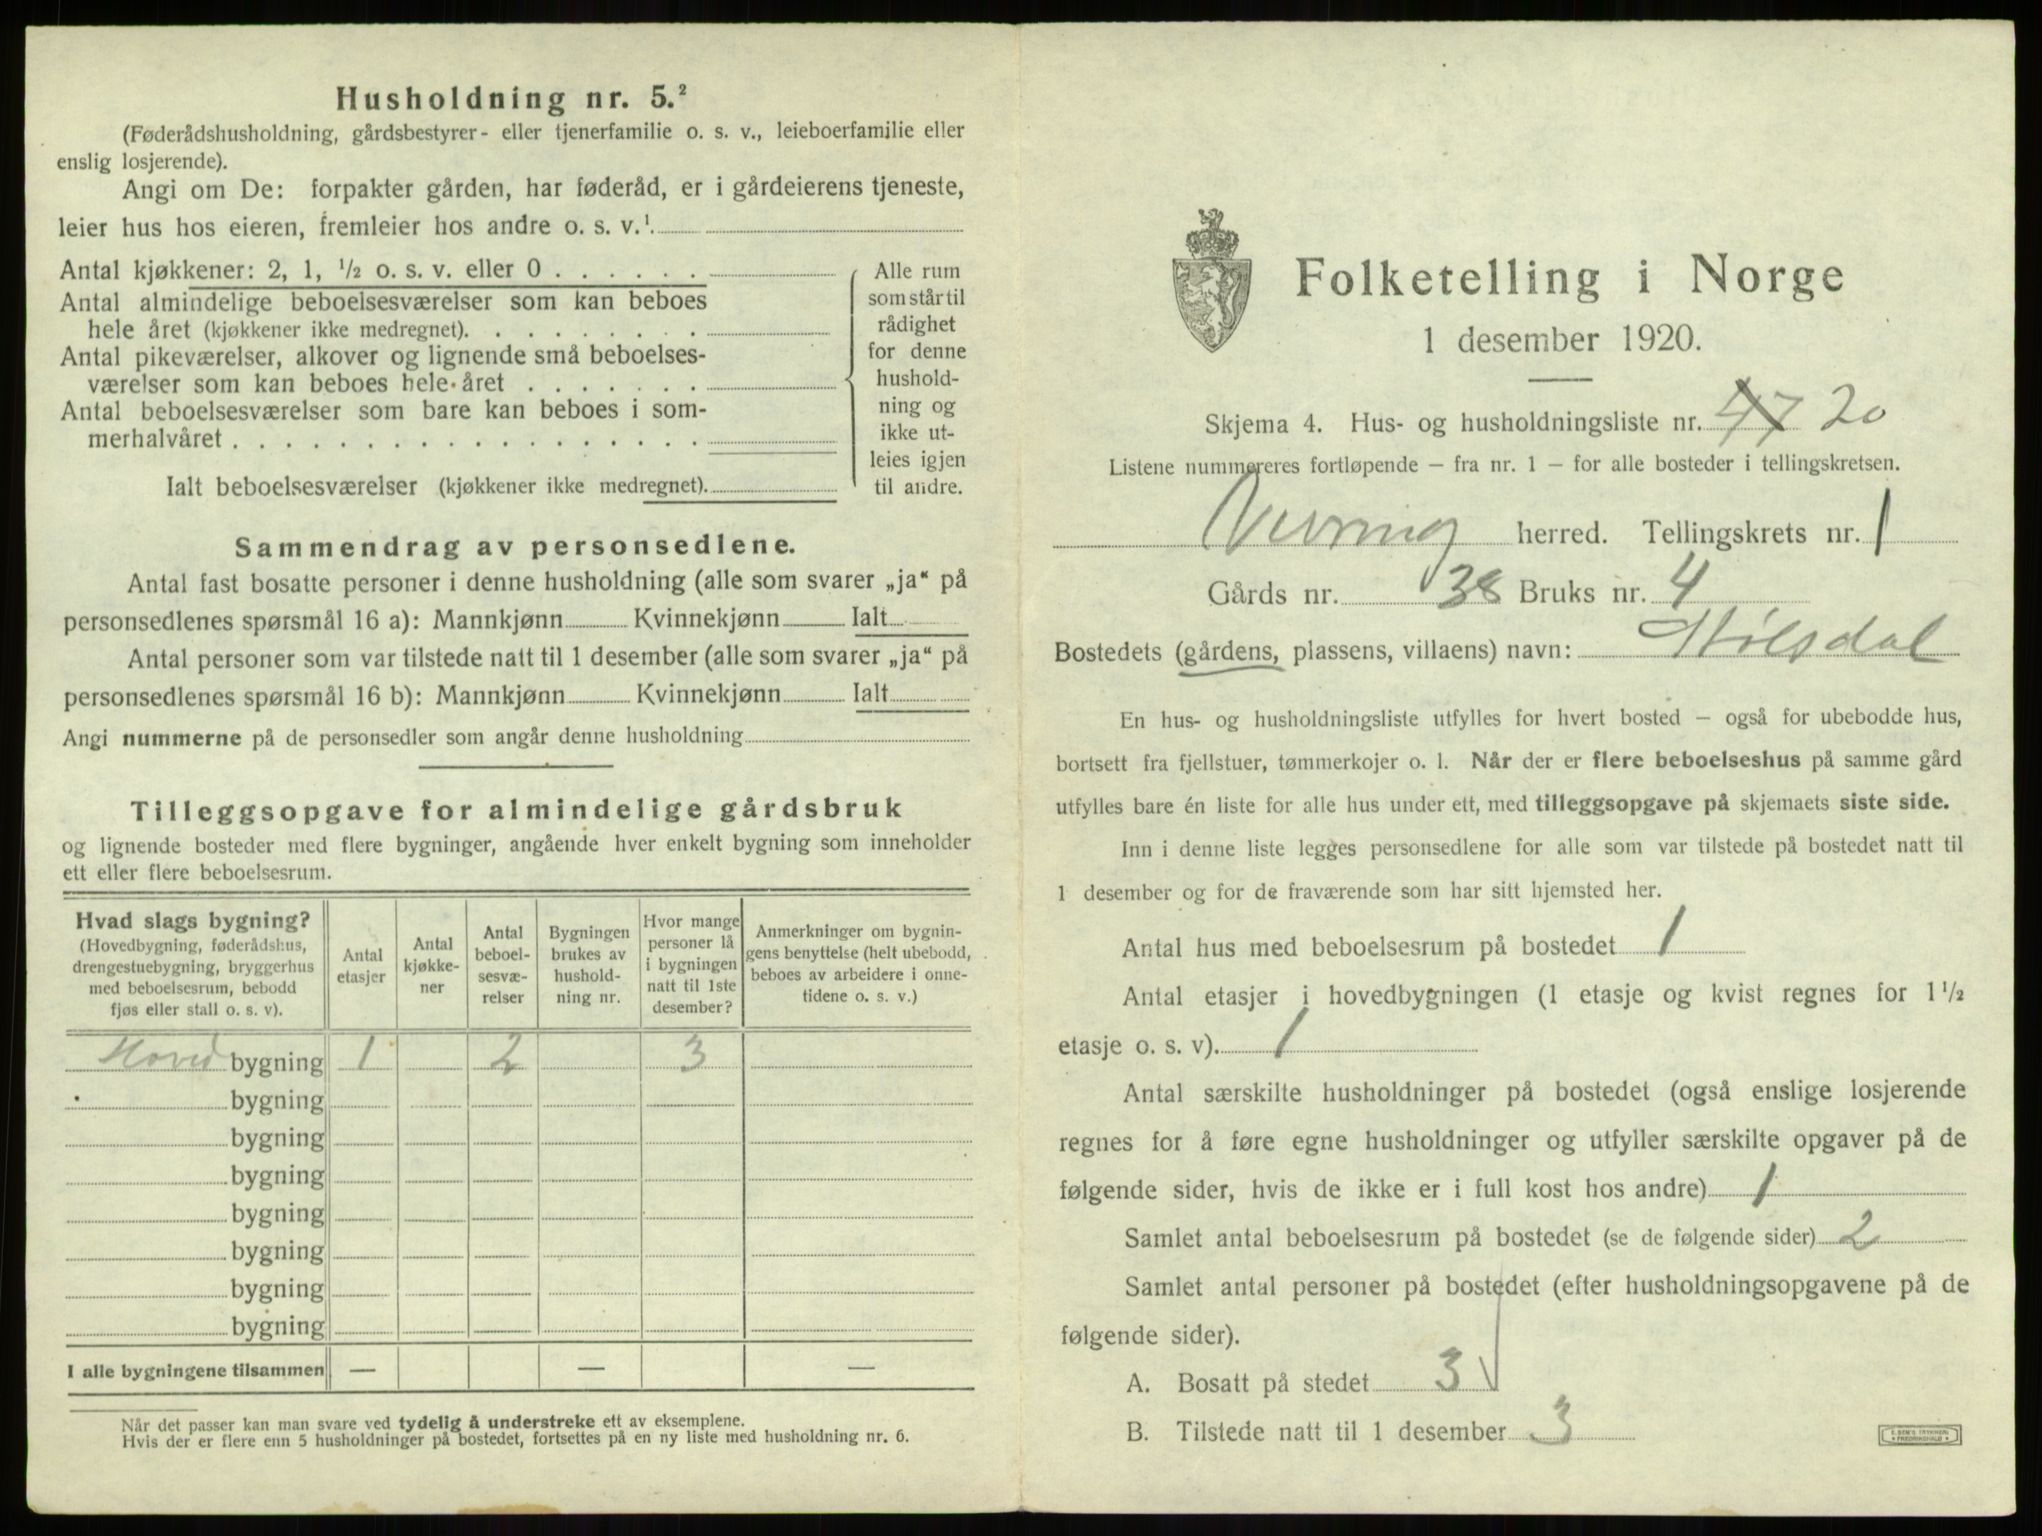 Husholdning nr. 5.²
(Føderådshusholdning, gårdsbestyrer- eller tjenerfamilie o. s. v., leieboerfamilie eller
enslig losjerende).
Angi om De: forpakter gården, har føderåd, er i gårdeierens tjeneste,
leier hus hos eieren, fremleier hos andre o. s. v.¹
Antal kjøkkener: 2, 1, ½ o. s. v. eller 0 . . . . . .
Antal almindelige beboelsesværelser som kan beboes
hele året (kjøkkener ikke medregnet). . . . . . . . .
Antal pikeværelser, alkover og lignende små beboelses-
værelser som kan beboes hele året . . . . . . .
Antal beboelsesværelser som bare kan beboes i som-
merhalvåret . . . . . . . . . . . . . . . . . .
Ialt beboelsesværelser (kjøkkener ikke medregnet).
Alle rum
som står til
rådighet
for denne
hushold-
ning og
ikke ut-
leies igjen
til andre.
Sammendrag av personsedlene.
Antal fast bosatte personer i denne husholdning (alle som svarer „ja“ på
personsedlenes spørsmål 16 a): Mannkjønn Kvinnekjønn Ialt
Antal personer som var tilstede natt til 1 desember (alle som svarer „ja“ på
personsedlenes spørsmål 16 b): Mannkjønn Kvinnekjønn Ialt
Angi nummerne på de personsedler som angår denne husholdning
Tilleggsopgave for almindelige gårdsbruk
og lignende bosteder med flere bygninger, angående hver enkelt bygning som inneholder
ett eller flere beboelsesrum.
Hvad slags bygning?
(Hovedbygning, føderådshus,
drengestuebygning, bryggerhus
med beboelsesrum, bebodd
fjøs eller stall o. s. v).
Antal
etasjer
Antal
kjøkke-
ner
Antal
beboel-
sesvæ-
relser
Bygningen
brukes av
hushold-
ning nr.
Hvor mange
personer lå
i bygningen
natt til 1ste
desember?
Anmerkninger om bygnin-
gens benyttelse (helt ubebodd,
beboes av arbeidere i onne-
tidene o. s. v.)
Hoved bygning 1 2 3
bygning
bygning
bygning
bygning
bygning
bygning
bygning
I alle bygningene tilsammen — — —
Når det passer kan man svare ved tydelig å understreke ett av eksemplene.
Hvis der er flere enn 5 husholdninger på bostedet, fortsettes på en ny liste med husholdning nr. 6.
Folketelling i Norge
1 desember 1920.
Skjema 4. Hus- og husholdningsliste nr. 47 20
Listene nummereres fortløpende — fra nr. 1 — for alle bosteder i tellingskretsen.
Vevring herred. Tellingskrets nr. 1
Gårds nr. 38 Bruks nr. 4
Bostedets (gårdens, plassens, villaens) navn: Stølsdal
En hus- og husholdningsliste utfylles for hvert bosted — også for ubebodde hus,
bortsett fra fjellstuer, tømmerkojer o. l. Når der er flere beboelseshus på samme gård
utfylles bare én liste for alle hus under ett, med tilleggsopgave på skjemaets siste side.
Inn i denne liste legges personsedlene for alle som var tilstede på bostedet natt til
1 desember og for de fraværende som har sitt hjemsted her.
Antal hus med beboelsesrum på bostedet 1
Antal etasjer i hovedbygningen (1 etasje og kvist regnes for 1 ½
etasje o. s. v). 1
Antal særskilte husholdninger på bostedet (også enslige losjerende
regnes for å føre egne husholdninger og utfyller særskilte opgaver på de
følgende sider, hvis de ikke er i full kost hos andre) 1
Samlet antal beboelsesrum på bostedet (se de følgende sider) 2
Samlet antal personer på bostedet (efter husholdningsopgavene på de
følgende sider).
A. Bosatt på stedet 3
B. Tilstede natt til 1 desember 3